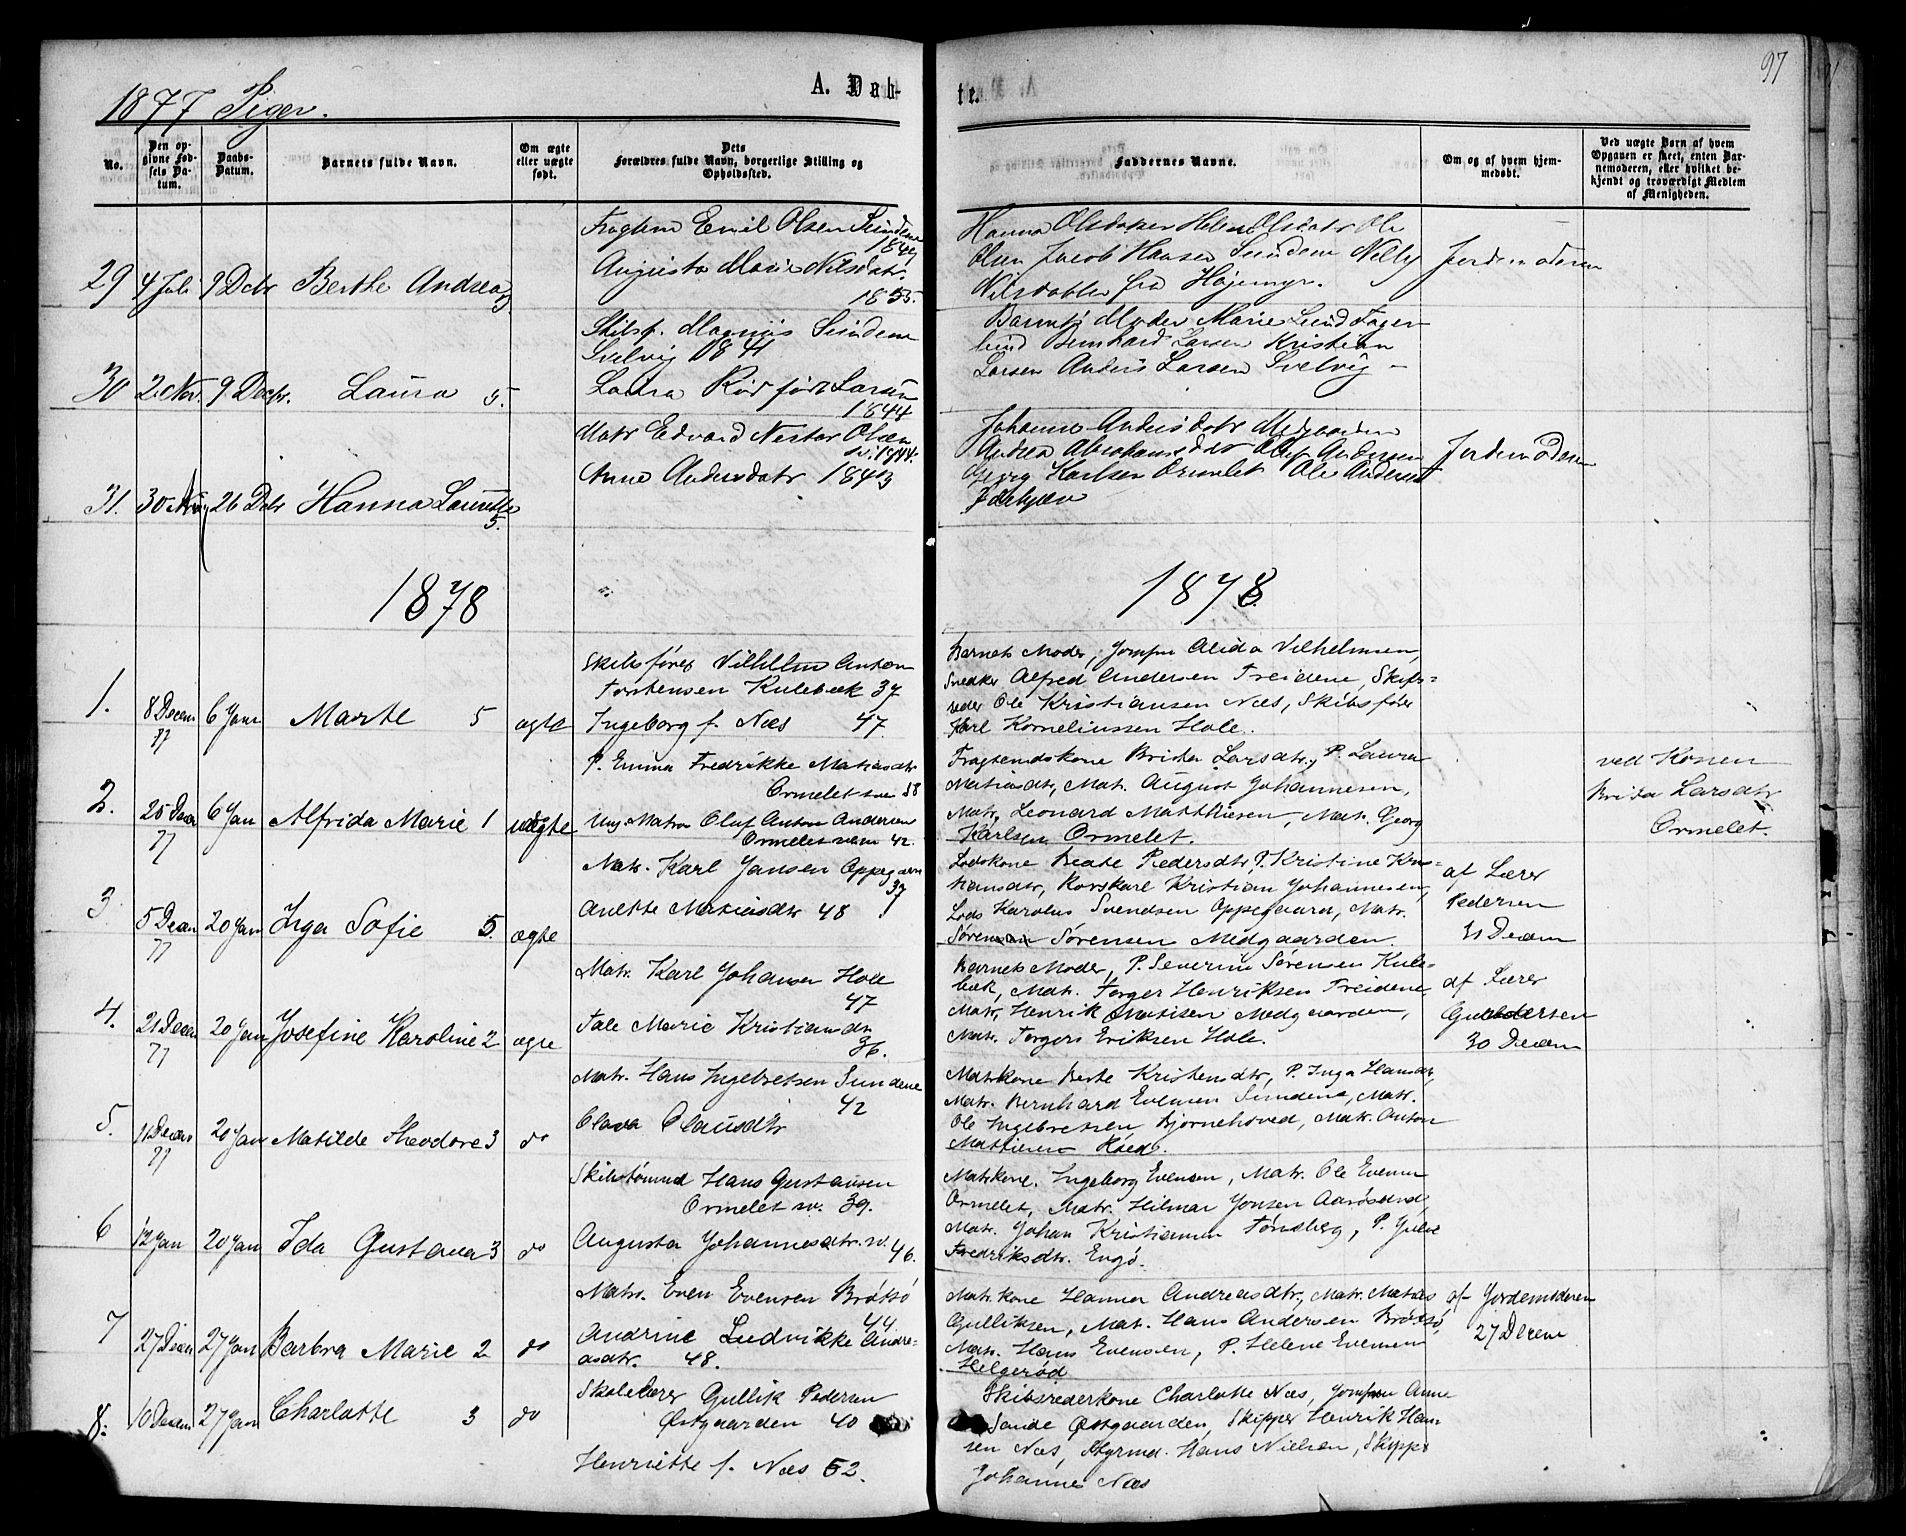 97
1877 Piger.
A. Dab-
te.
No.
Den op-
givne Fød-
sels Da-
tum.
Daabs-
Datum.
Barnets fulde Navn.
Om ægte
eller uægte
født.
Dets
Forældres fulde Navn, borgerlige Stilling og
Opholdssted.
Faddernes Navne.
Om og af hvem hjem-
medøbt.
Ved uægte Børn af hvem
Opgaven er skeet, enten Bar-
nemoderen, eller hvilket be-
kjendt og troværdigt Medlem
af Menigheden.
29 4 Juli 9 Decbr Berthe Andrea
Emil Olsen Sundene
Augusta Marie Nilsdatr.
1855.
Hanna Olsdatter Helene Olsdatr Ole
Olsen Jacob Hansen Sundene Nelly
Nilsdatter fra Højemyr.
Jordemoderen
30 2 Nov. 9 Decbr. Laura 5.
Skibsf. Magnus Sundene
Svelvig 1841
Laura Rød født Larsen
1844
Barnets Moder Marie Lund
Bernhard Larsen Kristian
Larsen Anders Larsen Svelvig
31. 30 26 Decbr Hanna Laurette 5.
Matr Edvard Nestor Olsen
1844.
Anne Andersdatr 1843
Johanne Andersdatr Midgaarden
Andrea Abrahamsdatr Oluf Andersen
Georg Karlsen Ormelet Ole Andersen
Jordemoderen
1878
1878.
1. 8 Decem 77 6 Jan Marte 5 ægte
Skibsfører Vilhelm Anton
Torstensen Kulebæk 37
Ingeborg f. Næs 47.
Barnets Moder, Jomfru Alida Vilhelmsen,
Snedker Alfred Andersen Treidene, Skibs=
reder Ole Kristiansen Næs, Skibsfører
Karl Korneliussen Hole.
2. 25 Decem 77 6 Jan Alfrida Marie 1 uægte
P. Emma Fredrikke Matiasdtr
Ormelet 58
Ung. Matros Oluf Anton Andersen
Ormelet 42.
Fragtemdskone Brida Larsdtr, P. Laura
Matiasdtr, Mat. August Johannesen,
Matr. Leonard Matthiesen, Mat. Georg
Karlsen Ormelet.
ved Konen
Brida Larsdtr
Ormelet.
3 5 Decem 77 20 Jan Inga Sofie 5. ægte
Matr. Karl Jansen Oppegaarn
37
Anette Matiasdtr 48
Lodskone Beate Pedersdtr, P. Kristine Kris=
tiansdtr, Rorskarl Kristian Johannesen,
Lods Karolus Svendsen Oppegaard, Matr.
Sørensen Midgaarden.
af Lærer
Pedersen
31 Decem
4. 21 Decem 77 20 Jan Josefine Karoline 2 ægte
Matr. Karl Johansen Hole
47
Tale Marie Kristiansdtr
36.
Barnets Moder, P. Severine Sørensen Kule=
bæk, Mat. Torger Henriksen Treidene,
Matr. Henrik Matisen Midgaarden,
Matr. Torgers Eriksen Hole.
af Lærer
30 Decem
5. 11 Decem 77 20 Jan Matilde Theodore 3 do
Matr. Hans Ingebretsen Sundene
42
Olava Olausdtr
Matrkone Berte Kristensdtr, P. Inga Hansdtr,
Matr. Bernhard Evensen Sundene, Matr.
Ole Ingebretsen Bjørnehoved, Matr. Anton
Mattiesen Røed.
6 12 Jan 20 Jan Ida Gustava 3 do
Skibstømmd Hans Gustavsen
Ormelet 39.
Augusta Johannesdtr. 46.
Matrkone. Ingeborg Evensen, Matr. Ole Evensen
Ormelet, Matr. Hilmar Jonsen Aarøsund,
Matr. Johan Kristiansen Tønsberg, P. Gulle
Fredriksdtr. Engø.
7 27 Decem 27 Jan Barbra Marie 2 do
Matr. Even Evensen Brøtsø
44
Andrine Ludvikke Andre=
asdtr. 48.
Matrkone Hanna Andreasdtr, Matr. Matias
Gulliksen, Mat. Hans Andersen Brøtsø,
Matr. Hans Evensen, P. Helene Evensen
Helgerød
af Jordemoderen
27 Decem
8. 16 Decem 27 Jan Charlotte 3 do
Skolelærer Gullik Pedersen
Østgaarden 40
Henriette f. Næs 52.
Skibsrederkone Charlotte Næs, Jomfru Anne
Sande Østgaarden, Skipper Henrik Han=
sen Næs, Styrmd. Hans Nielsen, Skipper
Johannes Næs